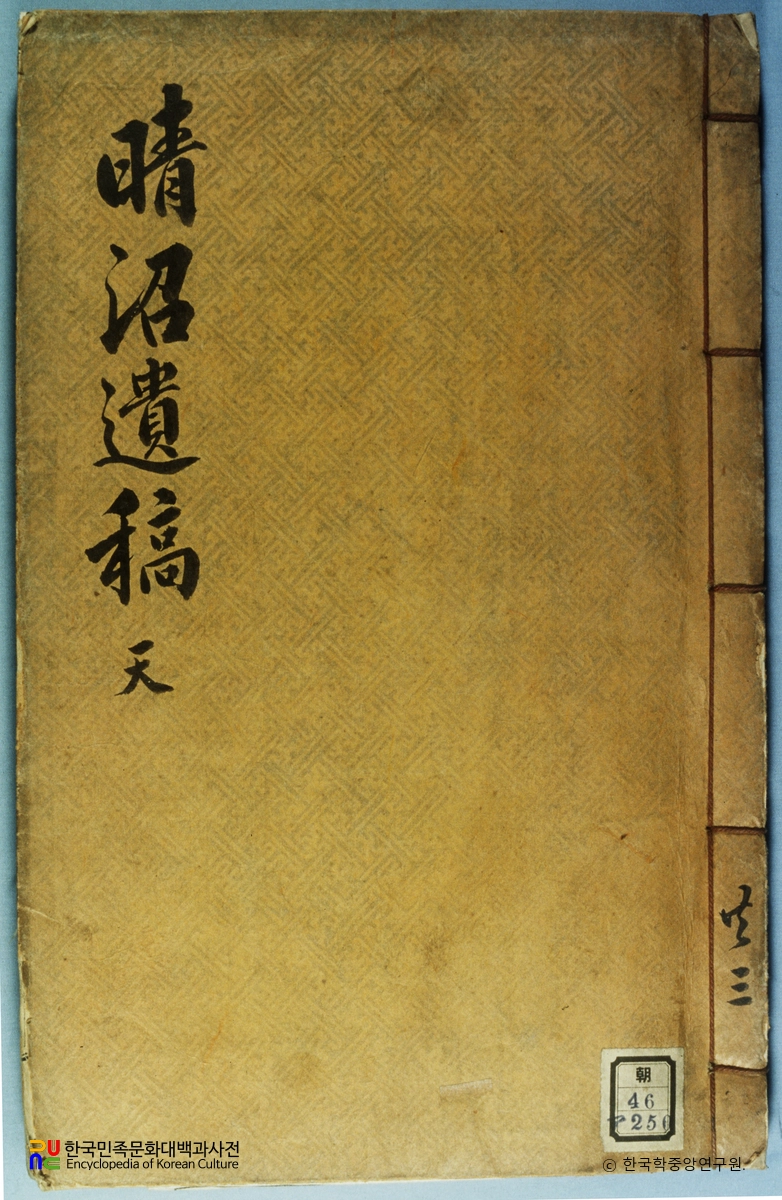 晴沼遺稿 天
共三
朝
46
250
한국민족문화대백과사전
Encyclopedia of Korean Culture
© 한국학중앙연구원.